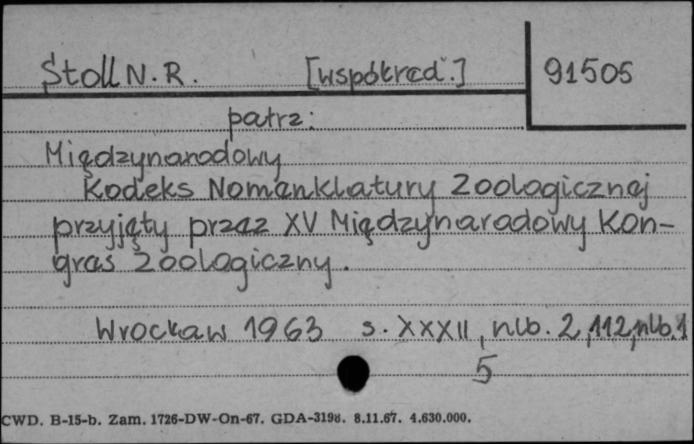 Stoll N. R. [współred.] 91505
patrz:
Międzynarodowy
Kodeks Nomenklatury Zoologicznej
przyjęty przez XV Międzynarodowy Kon-
gres Zoologiczny.
Wrocław 1963 s. XXXII, nlb. 2, 112, nlb. 1
5
CWD. B-15-b. Zam. 1726-DW-On-67. GDA-3198. 8.11.67. 4.630.000.